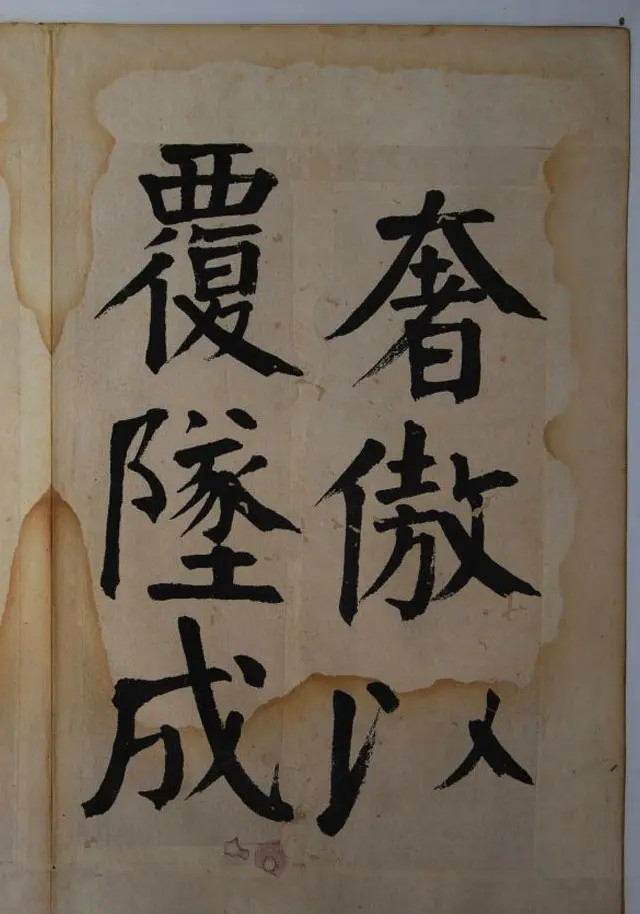 奢傲以
覆墜成